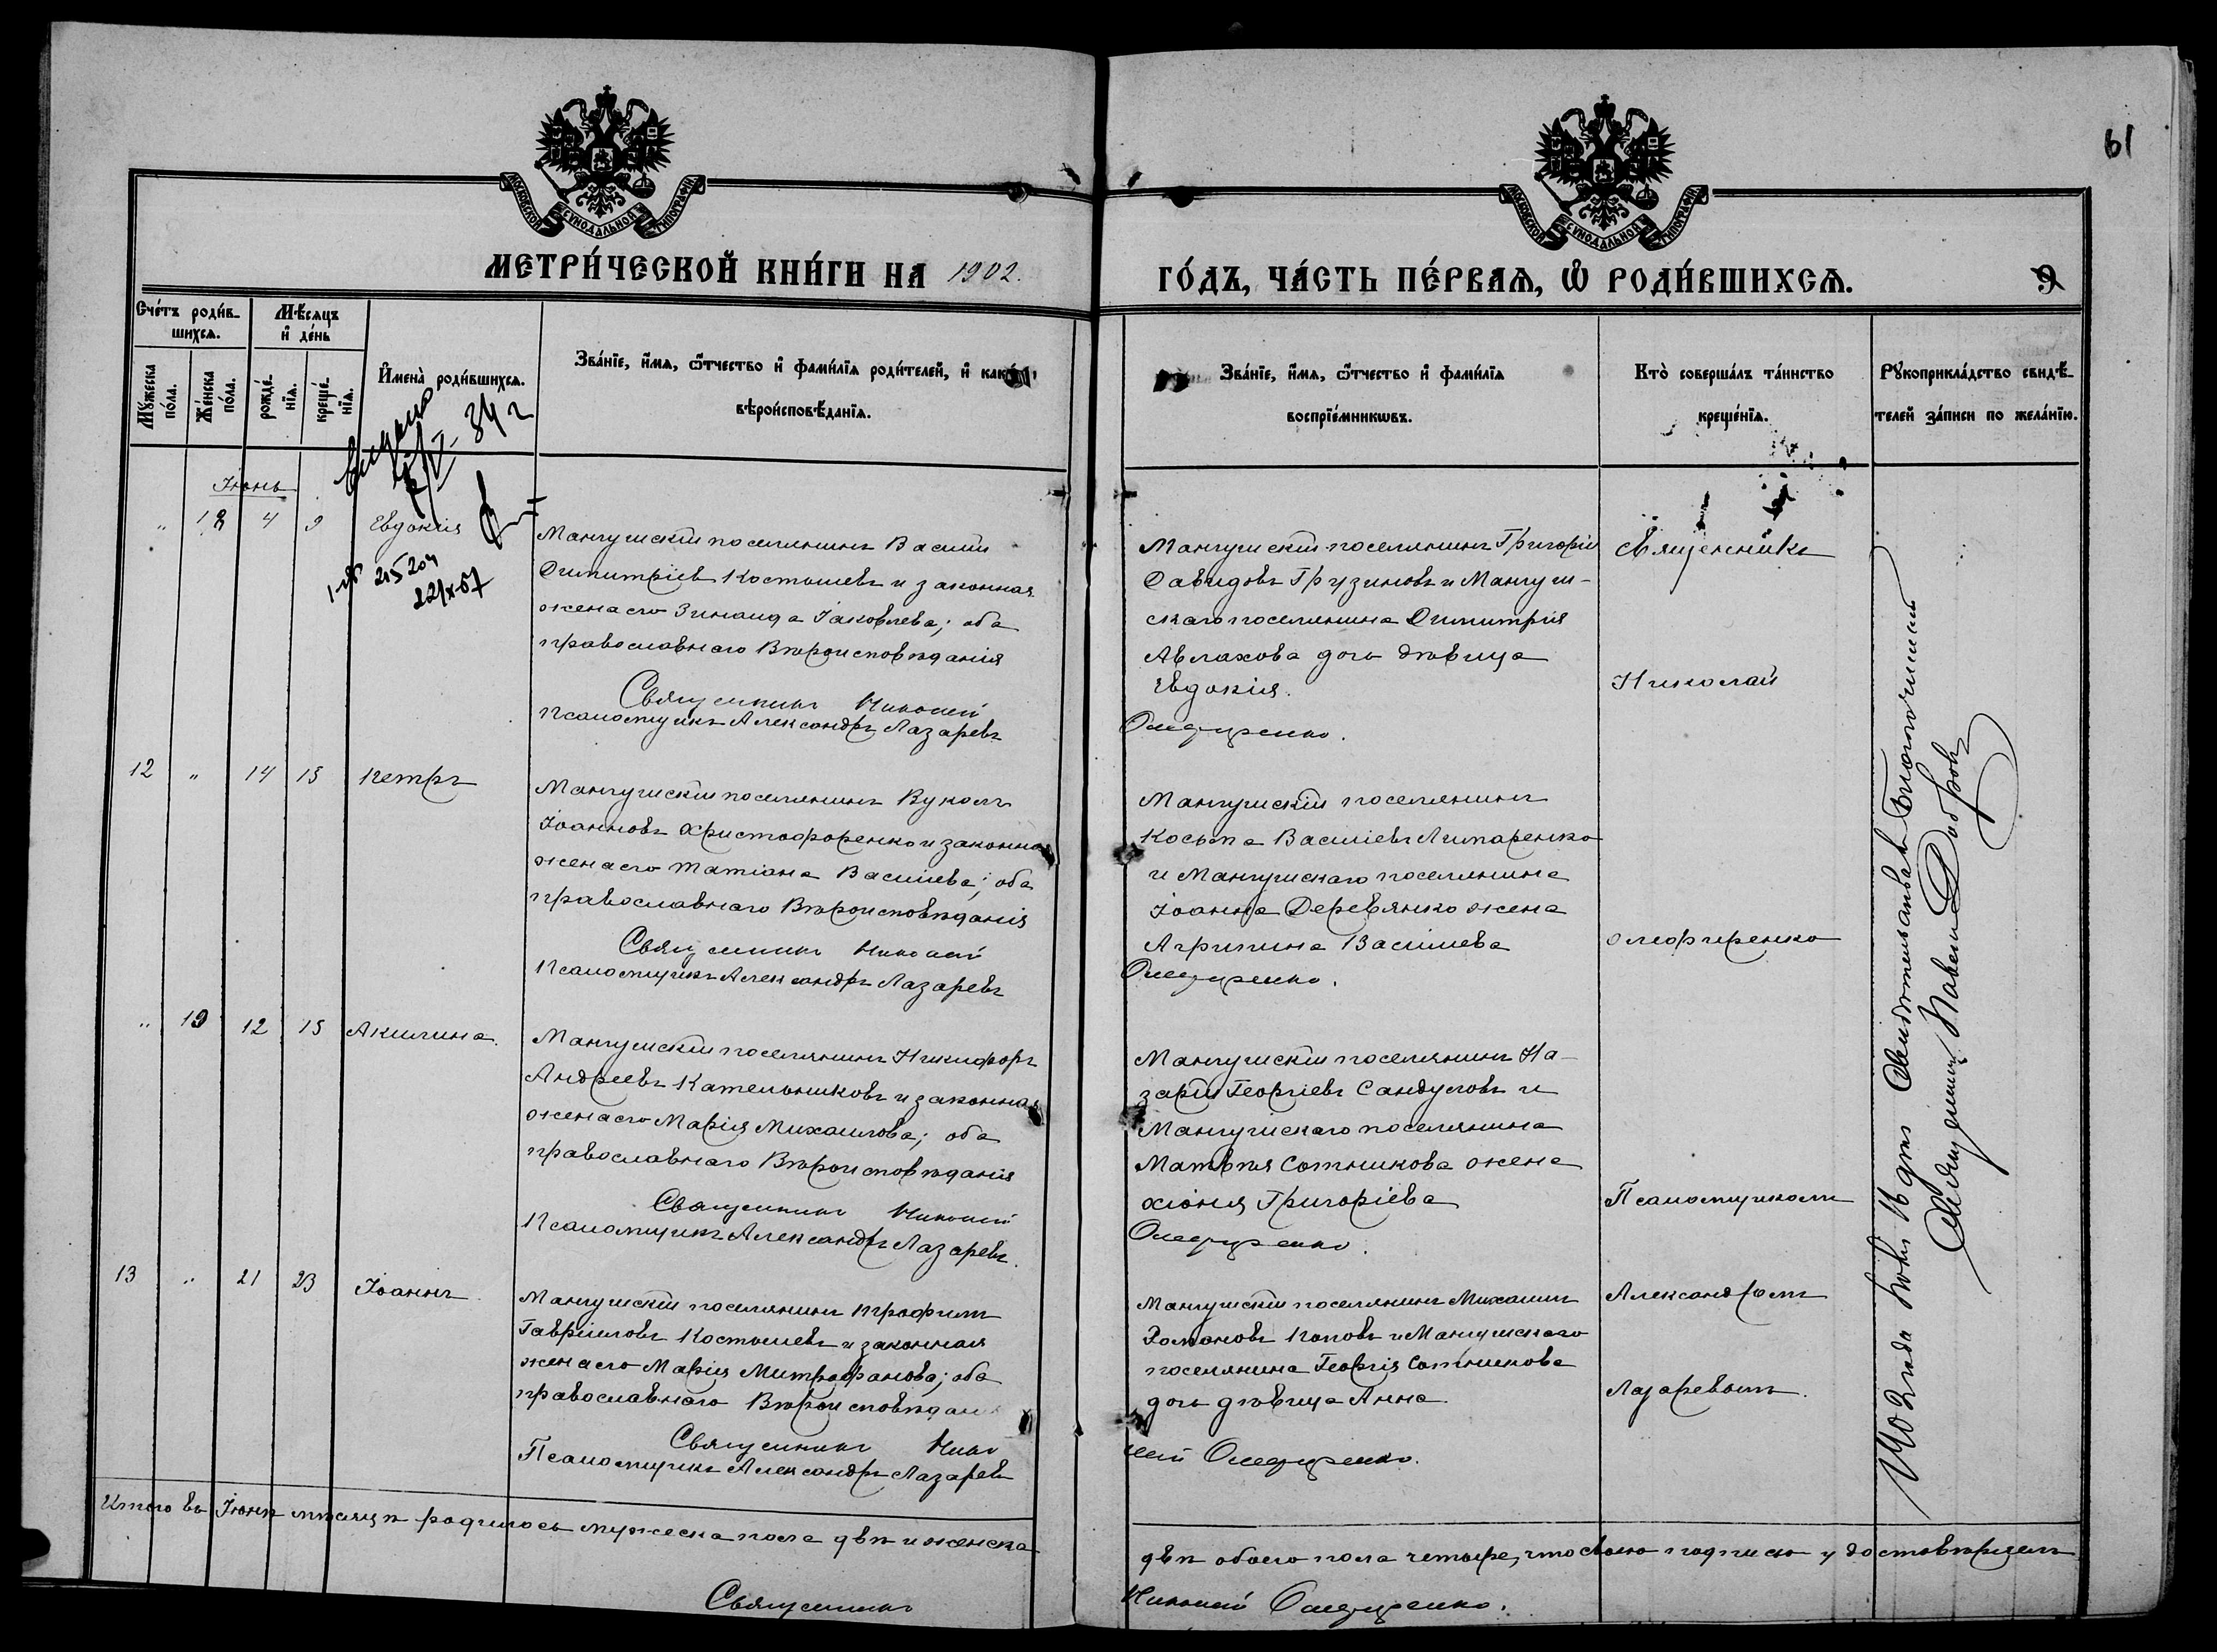 61
МОСКОВСКОЙ СУНОДАЛЬНОЙ ТИПОГРАФІИ
МОСКОВСКОЙ СУНОДАЛЬНОЙ ТИПОГРАФІИ
МЕТРИ́ЧЕСКОЙ КНИ́ГИ НА 1902.
ГО́ДЪ, ЧА́СТЬ ПЕ́РВАѦ, Ѡ҆ РОДИ́ВШИХСѦ.
9
Сче́тъ роди́в-
шихсѧ.
Мѣ́сѧцъ
и҆ де́нь
Мꙋ́жеска
по́ла.
Же́нска
по́ла.
рожде́-
нїѧ.
креще́-
нїѧ.
И҆мена̀ роди́вшихсѧ.
Зва́нїе, и҆́мѧ, ѻ҆́тчество и҆ фами́лїѧ роди́телей, и҆
вѣроисповѣ́данїѧ.
Зва́нїе, и҆́мѧ, ѻ҆́тчество и҆ фами́лїѧ
воспрїе́мникѡвъ.
Кто̀ соверша́лъ та́инство
креще́нїѧ.
Рꙋкоприкла́дство свидѣ́-
телей за́писи по жела́нїю.
34 г
Іюнь
" 18 4 9 Евдокія
215204
22/X-57
Мангушскій поселянинъ Василій
Димитріевъ Костышевъ и законная
жена его Зинаида Іаковлева; оба
православнаго Вѣроисповѣданія
Священникъ Николай
Псаломщикъ Александръ Лазаревъ
Мангушскій поселянинъ Григорій
Давидовъ Грузиновъ и Мангуш-
скаго поселянина Димитрія
Авлахова дочь дѣвица
Евдокія.
Священникъ
Николай
12 " 14 15 Петръ
Мангушскій поселянинъ Вуколъ
Іоанновъ Христофоренко и законная
жена его Татіана Василіева; оба
православнаго Вѣроисповѣданія
Священникъ Николай
Псаломщикъ Александръ Лазаревъ
Мангушскій поселянинъ
Косьма Василіевъ Лимаренко
и Мангушскаго поселянина
Іоанна Деревянко жена
Агрипина Василіева
" 19 12 15 Акилина.
Мангушскій поселянинъ Никифоръ
Андреевъ Кательниковъ и законная
жена его Марія Михаилова; оба
православнаго Вѣроисповѣданія
Священникъ Николай
Псаломщикъ Александръ Лазаревъ.
Мангушскій поселянинъ На-
зарій Георгіевъ Сандуловъ и
Мангушскаго поселянина
Матвѣя Сотникова жена
Хіонія Григоріева
Псаломщикомъ
13 " 21 23 Іоаннъ
Мангушскій поселянинъ Трофимъ
Гавріиловъ Костышевъ и законная
жена его Марія Митрофанова; оба
православнаго Вѣроисповѣданія
Священникъ Нико
Псаломщикъ Александръ Лазаревъ
Мангушскій поселянинъ Михаилъ
Романовъ Поповъ и Мангушскаго
поселянина Георгія Сотникова
дочь дѣвица Анна.
лай
Александромъ
Лазаревымъ.
Свидѣтельствовалъ Благочинный
Священникъ Павелъ
Итого въ Іюнѣ мѣсяцѣ родилось мужеска пола двѣ и женска
двѣ обоего пола четыре, что своею подписью удостовѣряемъ
Священникъ
Николай